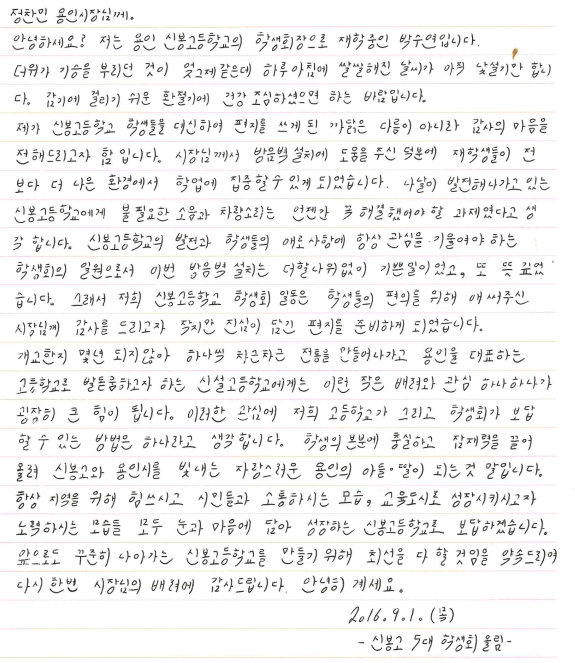 정찬민 용인시장님께.
안녕하세요? 저는 용인 신봉고등학교의 학생회장으로 재학중인 박수연입니다.
더위가 기승을 부리던 것이 엊그제같은데 하루아침에 쌀쌀해진 날씨가 아직 낯설기만 합니
다. 감기에 걸리기 쉬운 환절기에 건강 조심하셨으면 하는 바람입니다.
제가 신봉고등학교 학생들을 대신하여 편지를 쓰게 된 까닭은 다름이 아니라 감사의 마음을
전해드리고자 함 입니다. 시장님께서 방음벽 설치에 도움을 주신 덕분에 재학생들이 전
보다 더 나은 환경에서 학업에 집중할 수 있게 되었습니다. 나날이 발전해나가고 있는
신봉고등학교에게 불필요한 소음과 차량소리는 언젠간 꼭 해결했어야 할 과제였다고 생
각 합니다. 신봉고등학교의 발전과 학생들의 애로사항에 항상 관심을 기울여야 하는
학생회의 일원으로서 이번 방음벽 설치는 더할나위없이 기쁜일이었고, 또 뜻 깊었
습니다. 그래서 저희 신봉고등학교 학생회 일동은 학생들의 편의를 위해 애써주신
시장님께 감사를 드리고자 작지만 진심이 담긴 편지를 준비하게 되었습니다.
개교한지 몇년 되지않아 하나씩 차근차근 전통을 만들어나가고 용인을 대표하는
고등학교로 발돋움하고자 하는 신설고등학교에게는 이런 작은 배려와 관심 하나하나가
굉장히 큰 힘이 됩니다. 이러한 관심에 저희 고등학교가 그리고 학생회가 보답
할 수 있는 방법은 하나라고 생각합니다. 학생의 본분에 충실하고 잠재력을 끌어
올려 신봉고와 용인시를 빛내는 자랑스러운 용인의 아들·딸이 되는 것 말입니다.
항상 지역을 위해 힘쓰시고 시민들과 소통하시는 모습, 교육도시로 성장시키시고자
노력하시는 모습들 모두 눈과 마음에 담아 성장하는 신봉고등학교로 보답하겠습니다.
앞으로도 꾸준히 나아가는 신봉고등학교를 만들기 위해 최선을 다 할 것임을 약속드리며
다시 한번 시장님의 배려에 감사드립니다. 안녕히 계세요.
2016.9.1.(목)
- 신봉고 5대 학생회 올림 -